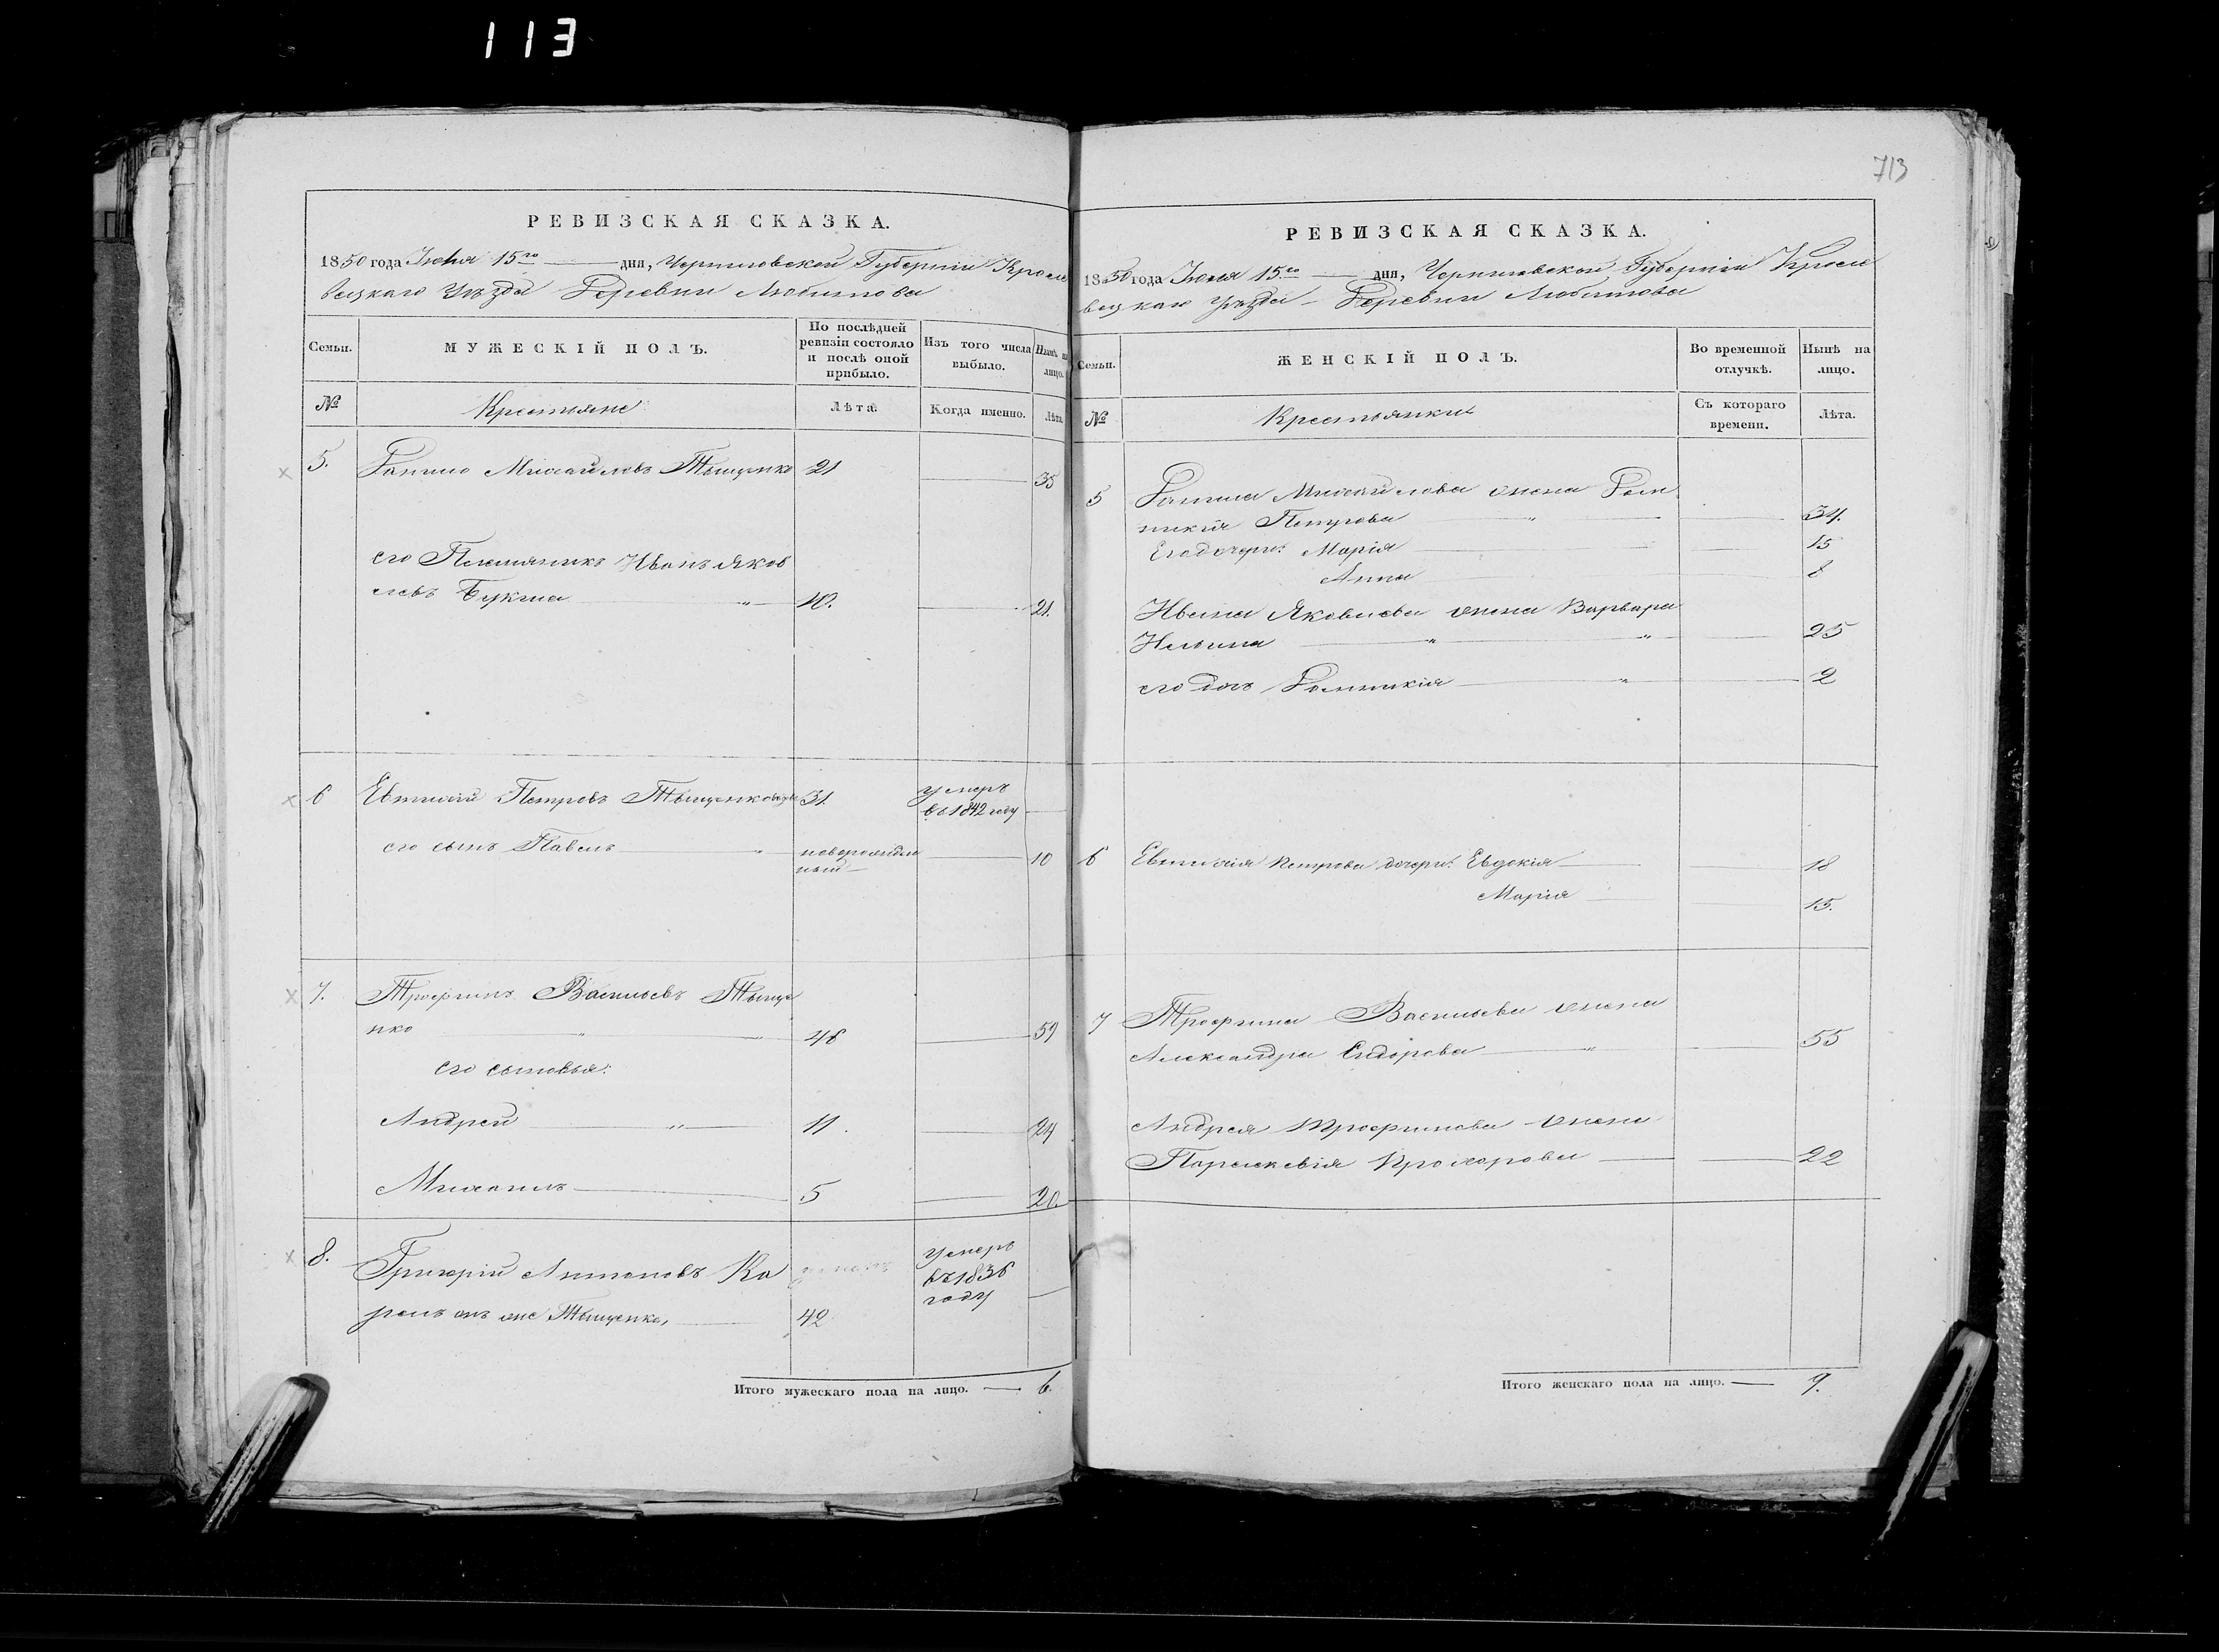 113
713
РЕВИЗСКАЯ СКАЗКА.
1850 года Іюня 15го дня, Черниговской Губерніи Кроле
вецкаго Уѣзда Деревни Любитова
Семьи.
МУЖЕСКІЙ ПОЛЪ.
По послѣдней ревизіи состояло и послѣ оной прибыло.
Изъ того числа выбыло.
Нынѣ на лицо.
№
Крестьяне
Лѣта.
Когда именно.
Лѣта.
5. Данило Михайловъ Тыщенко 21 35
его Племянникъ Иванъ Яков
левъ Букша 10. 21.
6 Евтихій Петровъ Тыщенко 31 умеръ
въ 1842 году
его сынъ Павелъ новорожден 10
ный
7. Трофимъ Васильевъ Тыще
нко 46 59
его сыновья:
Андрей 11. 24
Михаилъ 5 20.
8. Григорій Антоновъ Ка умеръ
въ 1836
году
онъ же Тыщенко, 42
Итого мужескаго пола на лицо. — 6.
РЕВИЗСКАЯ СКАЗКА.
1850 года Іюня 15го дня, Черниговской Губерніи Кроле
вецкаго Уѣзда Деревни Любитова
Семьи.
ЖЕНСКІЙ ПОЛЪ.
Во временной отлучкѣ.
Нынѣ на лицо.
№
Крестьянки
Съ котораго времени.
Лѣта.
5 Данила Михайлова жена Дом
никія Петрова 34.
Его дочери: Марія 15
Анна 8
Ивана Яковлева жена Варвара
Ильина 25
его дочь Домникія 2
6 Евтихія Петрова дочери: Евдокія 18
Марія 15.
7 Трофима Васильева жена
Александра 55
Андрея Трофимова жена
Параскевія Прохорова 22
Итого женскаго пола на лицо. — 9.